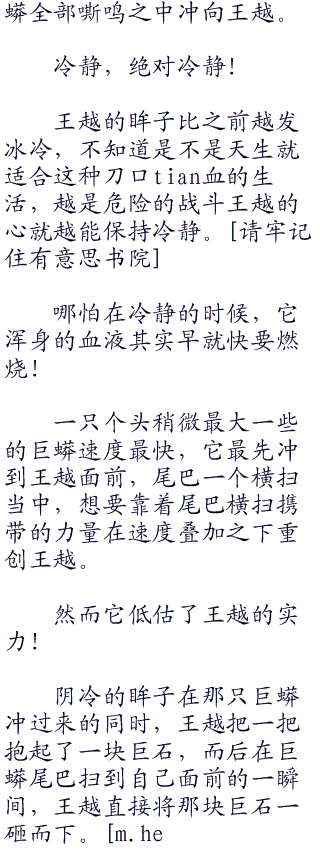 蟒全部嘶鸣之中冲向王越。
冷静，绝对冷静！
王越的眸子比之前越发
冰冷，不知道是不是天生就
适合这种刀口tian血的生
活，越是危险的战斗王越的
心就越能保持冷静。[请牢记
住有意思书院]
哪怕在冷静的时候，它
浑身的血液其实早就快要燃
烧！
一只个头稍微最大一些
的巨蟒速度最快，它最先冲
到王越面前，尾巴一个横扫
当中，想要靠着尾巴横扫携
带的力量在速度叠加之下重
创王越。
然而它低估了王越的实
力！
阴冷的眸子在那只巨蟒
冲过来的同时，王越把一把
抱起了一块巨石，而后在巨
蟒尾巴扫到自己面前的一瞬
间，王越直接将那块巨石一
砸而下。[m.he